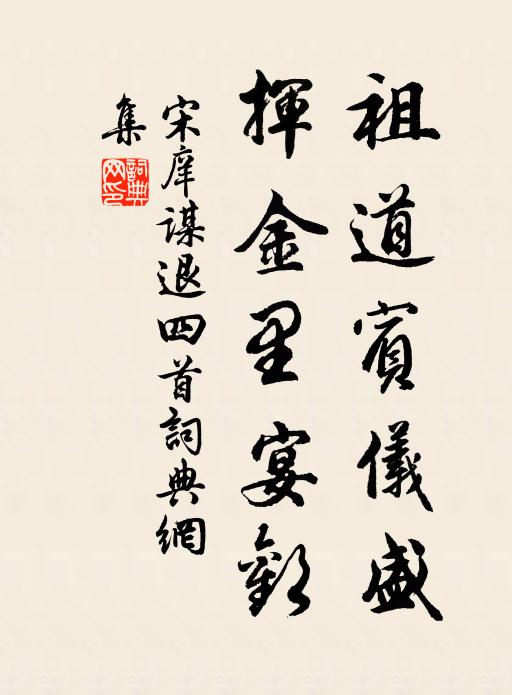 祖道賓儀盛
揮金里宴歡
宋庠謀退四首詞典網
集
詞典
网印